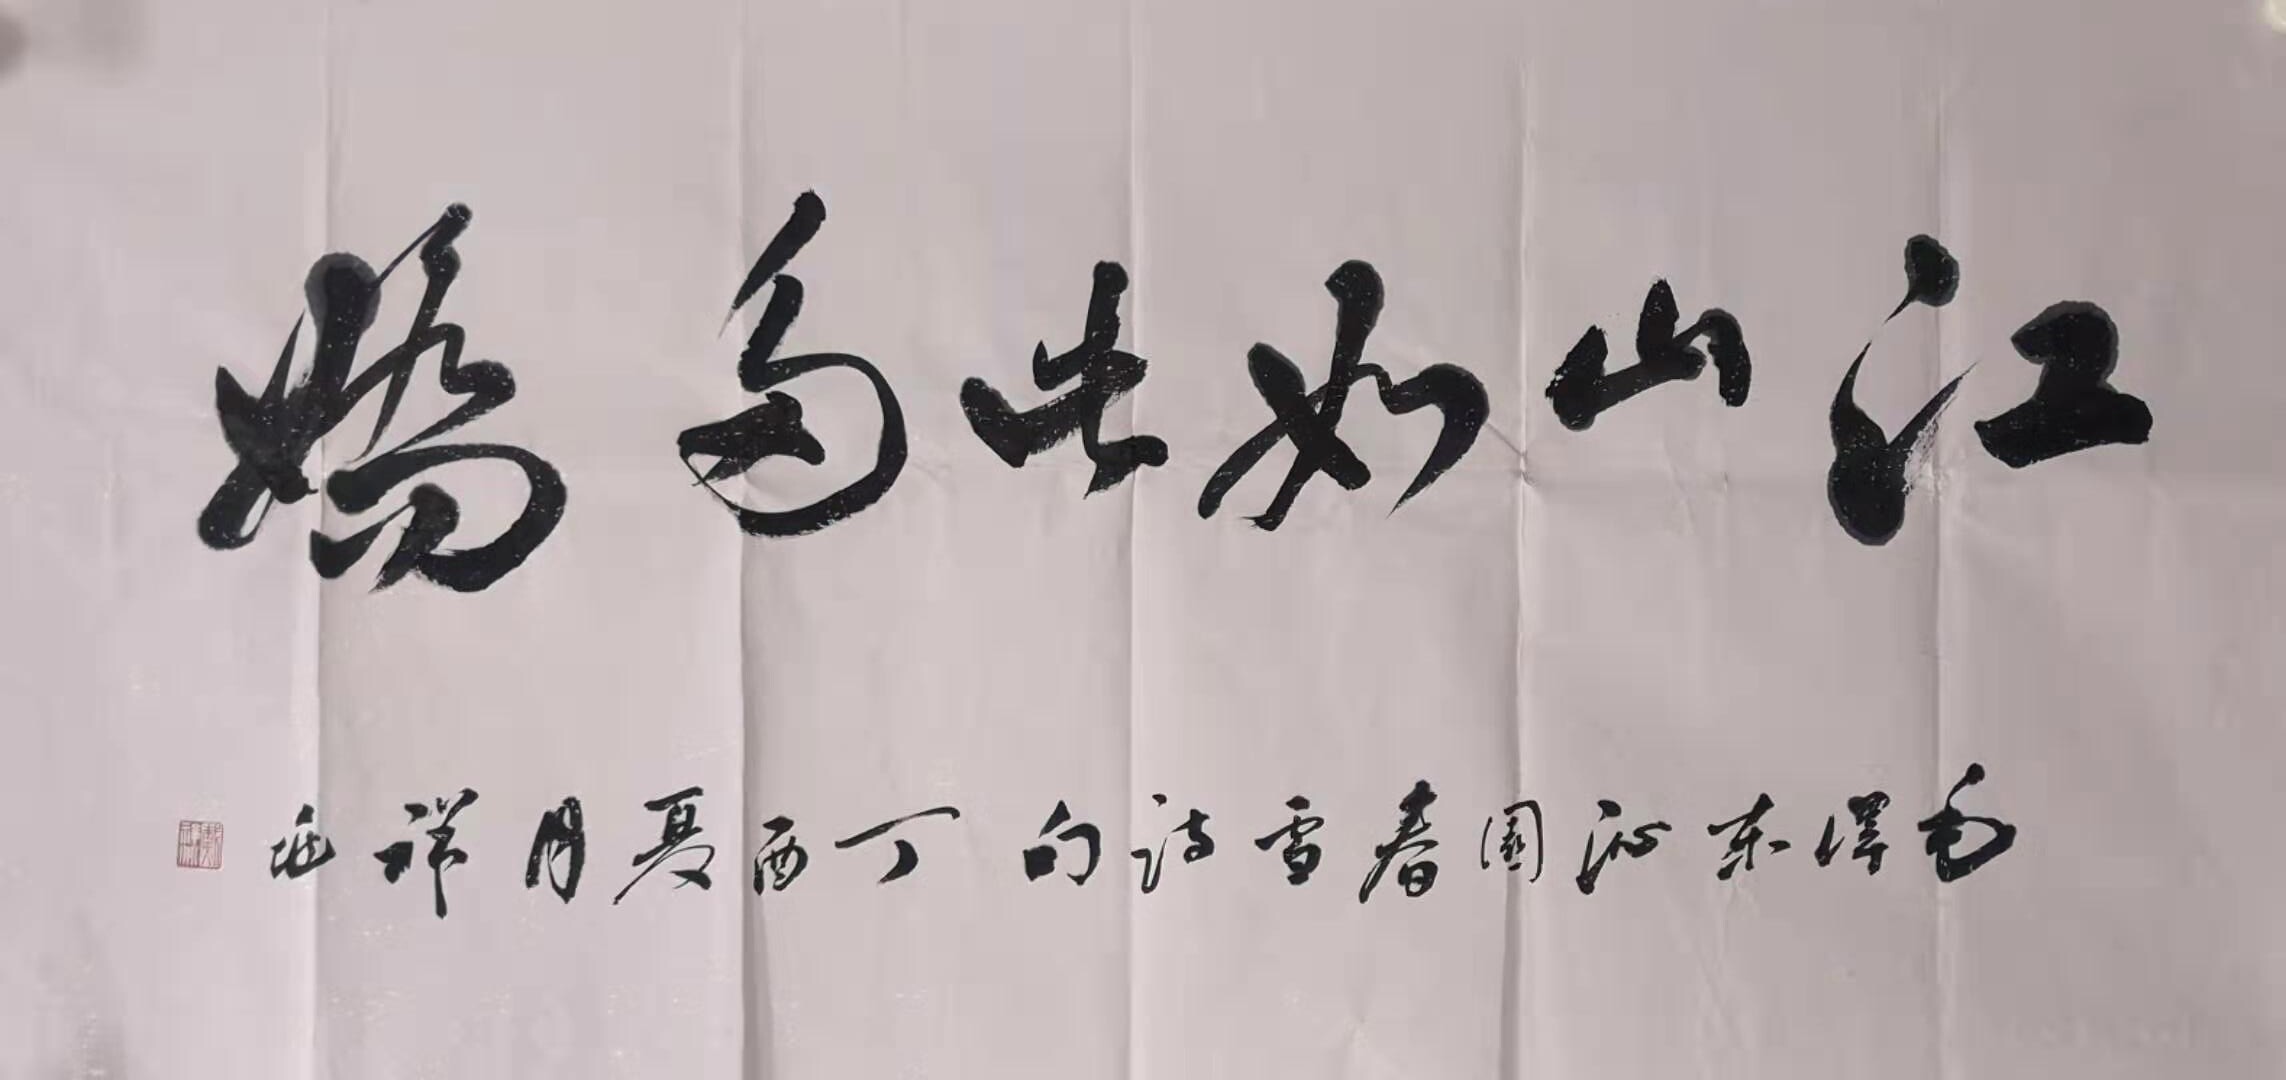 江山如此多娇
毛泽东沁园春雪诗句丁酉夏月祥